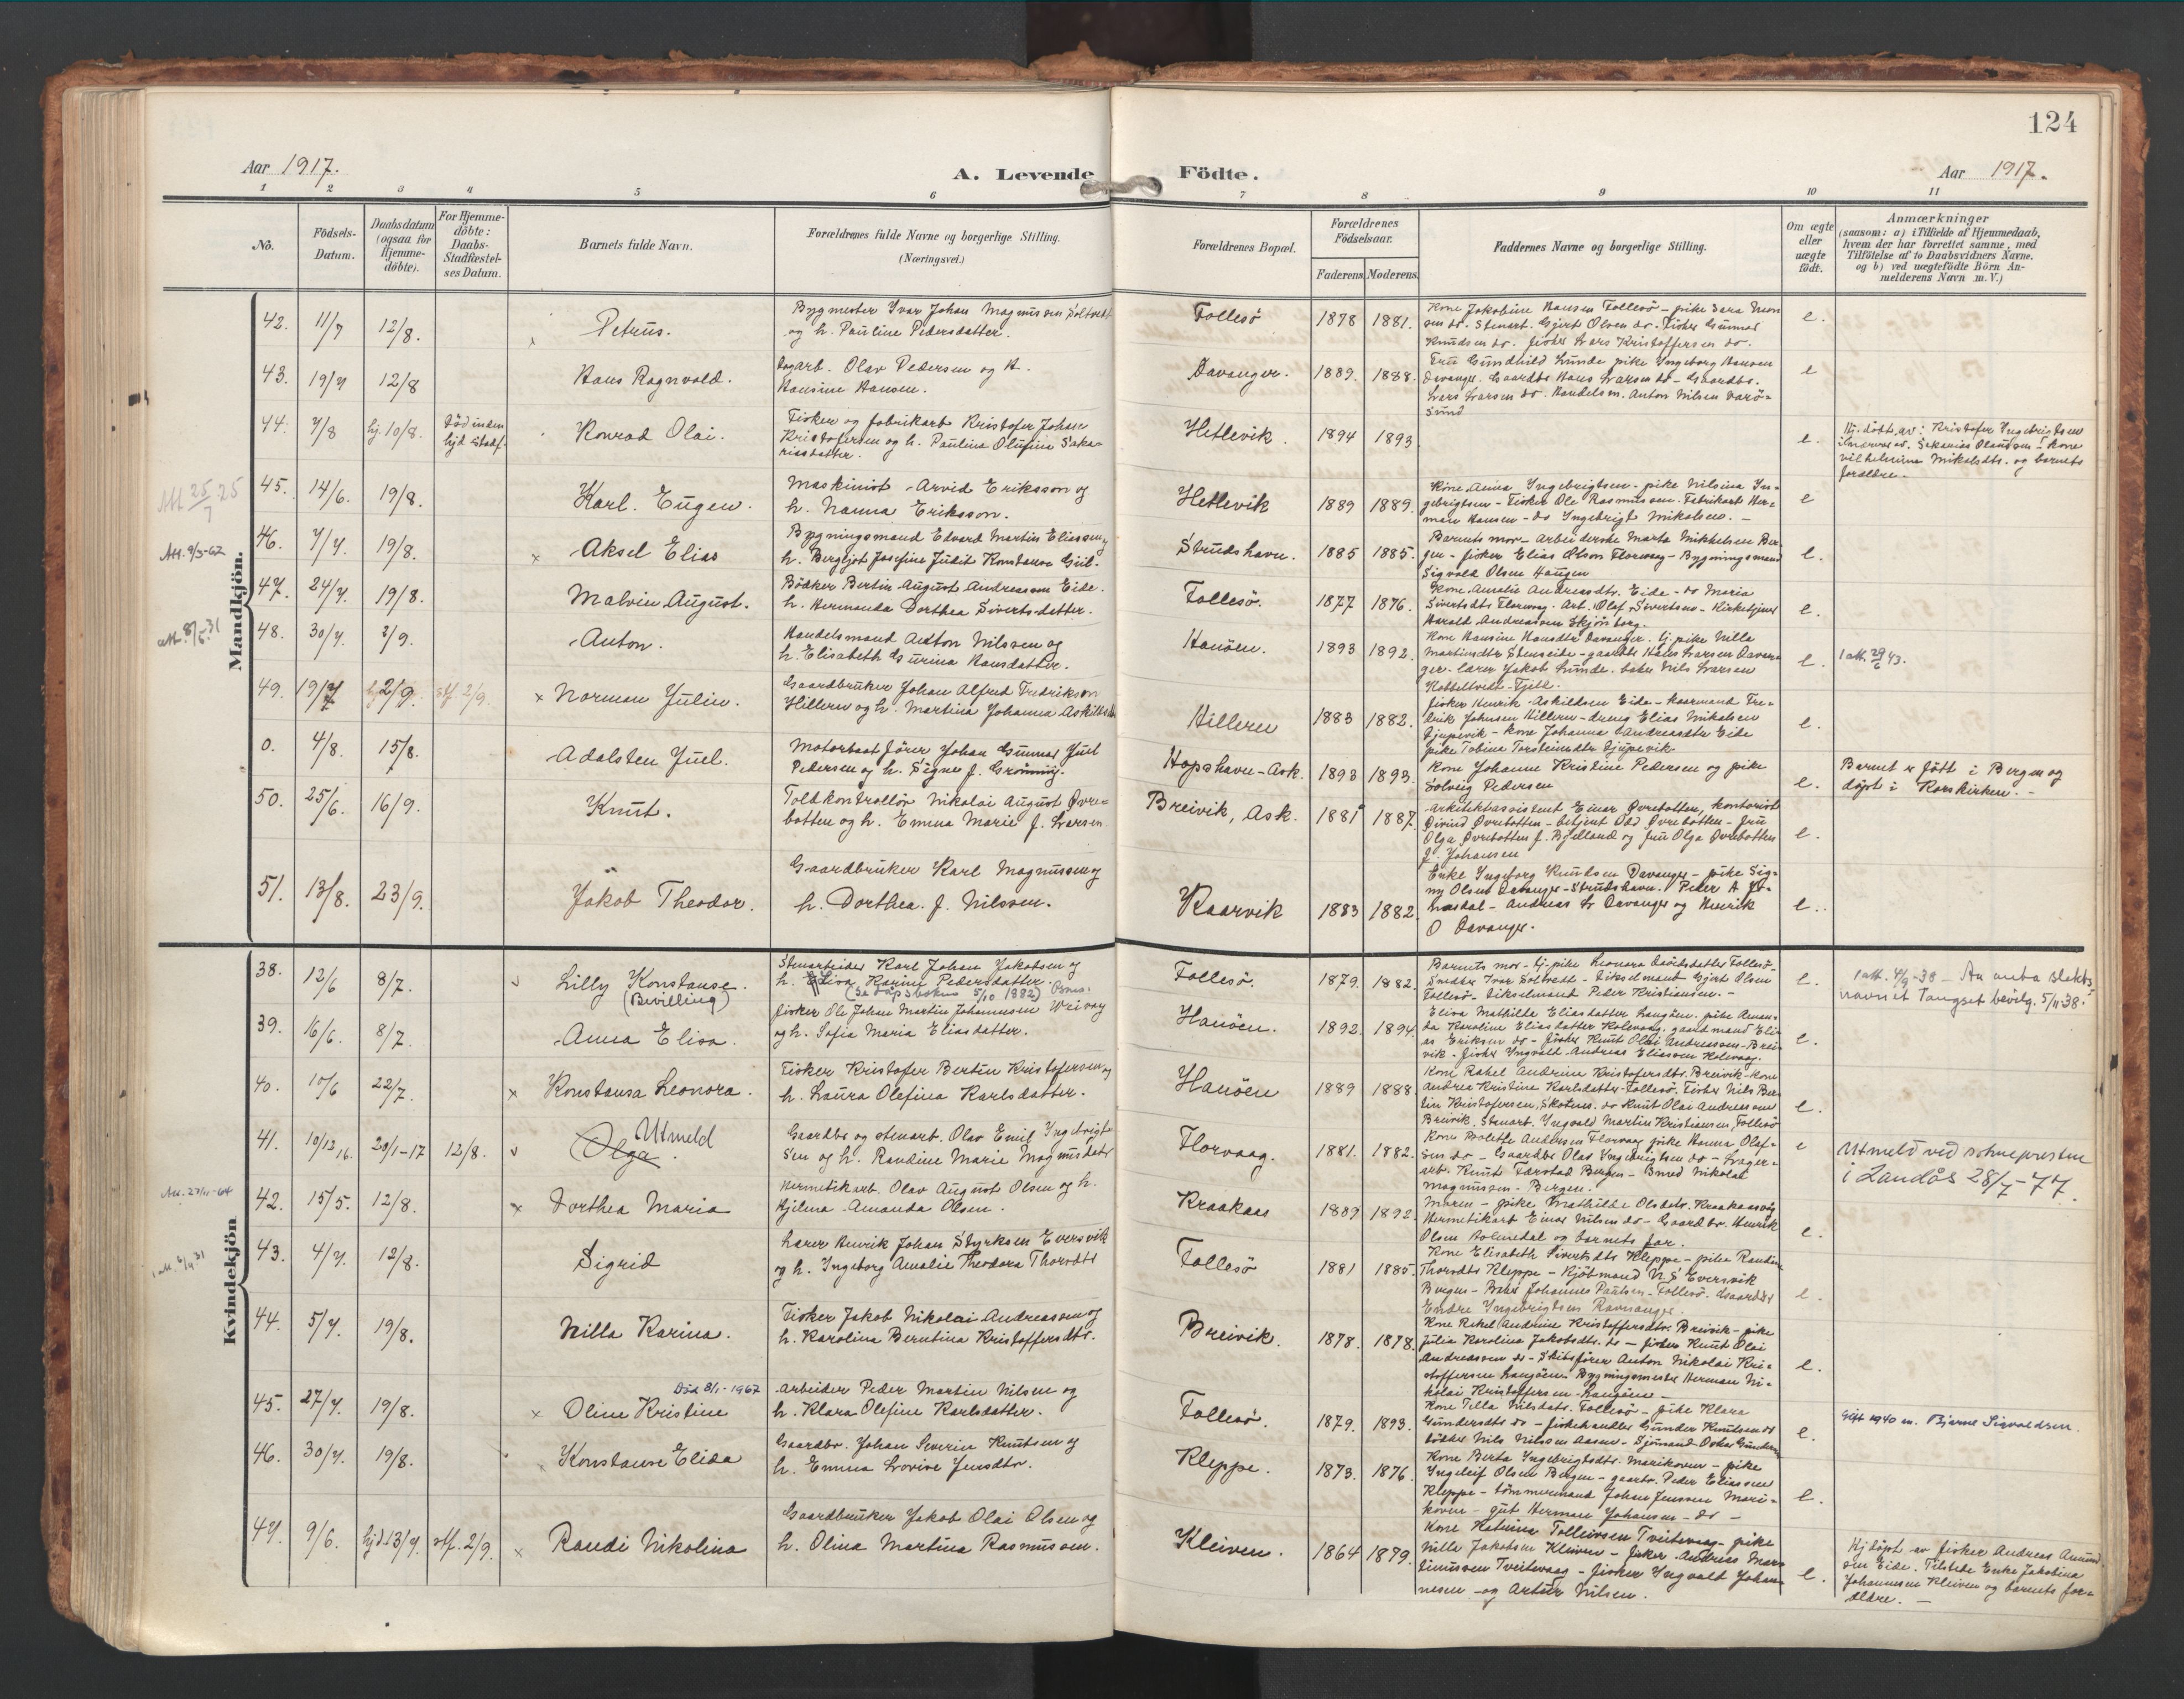 124
Aar 1917.
A. Levende Fødte.
Aar 1917.
1 2 3 4 5 6 7 8 9 10 11
No.
Fødsels-Datum.
Daabsdatum (ogsaa for Hjemme-døbte).
For Hjemme-døbte: Daabs-Stadfæstel-ses Datum.
Barnets fulde Navn.
Forældrenes fulde Navne og borgerlige Stilling.
(Næringsvei.)
Forældrenes Bopæl.
Forældrenes Fødselsaar.
Faderens. Moderens.
Faddernes Navne og borgerlige Stilling.
Om ægte eller uægte født.
Anmærkninger
(saasom: a) i Tilfælde af Hjemmedaab,
hvem der har forrettet samme, med
Tilføielse af to Daabsvidners Navne.
og b) ved uægtefødte Børn An-
melderens Navn m. V.)
Mandkjön.
42. 11/7 12/8. Petrus.
Bygmester Ivar Johan Magnussen Soltvedt
og h. Pauline Pedersdatter.
Follesö 1878 1881.
Kone Jakobine Hansen Follesö - pike Sara
Stenarb. Gjert Olsen do. Fisker Gunnar
Knudsen do. fisker Lars Kristoffersen do.
e.
43. 19/7 12/8 Hans Ragnvald.
Dagarb. Olav Pedersen og h.
Hansine Hansen.
Davanger. 1889. 1888.
Fru Gundhild Lunde pike Ingeborg Hansen
Davanger. Gaardbr. Hans Larsen do - Gaardbr.
Lars Larsen do. Handelsm. Anton Nilsen
e
44. 7/8 hj. 10/8. Död inden hjd. stadf. Konrad Olai.
Fisker og fabrikarb Kristofer Johan
Kristofersen og h. Paulina Olufine Saka-
riasdatter.
Hetlevik. 1894 1893
e.
Hj. döbt av: Kristofer Ingebrigtsen
Sekarias Olausen - kone
Vilhelmine Mikalsdtr. og barnets
forældre.
Att 25/7 25
45. 14/6. 19/8. Karl. Eugen.
Maskinist Arvid Eriksson og
h. Nanna Eriksson.
Hetlevik 1889 1889.
Kone Anna Ingebrigtsen - pike Nilsina In-
gebrigtsen - Fisker Ole Rasmussen. Fabrikarb Her-
man Hansen - do Ingebrigt Mikalsen. -
e
Att. 9/3-62
46. 7/7. 19/8. × Aksel Elias
Bygningsmand Edvard Martin Eliassen og
h. Bergljot Josefine Judit Konstanse Gul-
Strudshavn. 1885 1885.
Barnets mor - arbeiderske Marta Mikkelsen Ber-
gen - fisker Elias Olson Florvaag - Bygningsmand
Sigvald Olsen Haugen
e.
47. 24/7. 19/8. Malvin August.
Bödker Bertin August Andreassen Eide.
h. Hermanda Dorthea Sivertsdatter.
Follesö. 1877 1876.
Kone Amalie Andreasdtr. Eide - do Maria
Sivertsdtr Florvaag. Arb. Olaf Sivertsen - Kirketjener
Harald Andreassen Skjönborg.
e.
att. 8/5. 31
48. 30/7. 2/9. Anton.
Handelsmand Anton Nilssen og
h. Elisabeth Gurina Hansdatter.
Hanöen. 1893 1892.
Kone Hansine Hansdtr Davanger. tj. pike Nilla
Martinsdtr Stenseide - gaardbr Hans Larsen Davan-
ger - lærer Jakob Lunde. baker Nils Larsen
Kobbeltvedt - Fjell.
e.
1 att. 29/6 43.
49. 19/7 hj 2/9. stf 2/9. × Norman Julin.
Gaardbruker Johan Alfred Fredrikson
Hilleren og h. Martina Johanna Askildsdtr
Hilleren 1883 1882.
fisker Henrik Askildsen Eide - kaarmand Fre-
drik Johnsen Hilleren - dreng Elias Mikalsen
Djupevik - kone Johanna Andreasdtr Eide
pike Tobina Torsteinsdtr Djupevik
e.
0. 4/8. 15/8. Adalsten Juel.
Motorbaatförer Johan Gunnar Juel
Pedersen og h. Signe f. Grönning.
Hopshavn-Ask. 1893 1893.
Kone Johanne Kristine Pedersen og pike
Solveig Pedersen
e.
Barnet er född i Bergen og
döpt i Korskirken. -
50. 25/6. 16/9. Knut.
Toldkontrollör Nikolai August Øvre-
botten og h. Emma Marie f. Larsen
Breivik, Ask. 1881 1887
Arkitektassistent Einar Øvrebotten, kontorist
Øivind Øvrebotten - betjent Odd Øvrebotten - fru
Olga Øvrebotten f. Bjelland og fru Olga Øvrebotten
f. Johansen
e.
51. 13/8. 23/9. Jakob Theodor.
Gaardbruker Karl Magnussen og
h. Dorthea. f. Nilssen.
Kaarvik 1883 1882.
Enke Ingeborg Knudsen Davanger - pike Sig-
ny Olsen Davanger - Strudshavn. Peder A Jo-
nasdal - Andreas Lr Davanger og Henrik
O Davanger.
e.
Kvindekjön
38. 12/6 8/7. Lilly Konstanse.
(Bevilling)
Stenarbeider Karl Johan Jakobsen og
h. Elisa Karine Pedersdatter.
(se dåpsbekus 5/10 1882)
Follesö. 1879. 1882.
Barnets mor - tj. pike Leonora Davidsdatter Follesö -
Snedker Ivar Soltvedt - Fikselmand Gjert Olsen
Follesö - Fikselmand Peder Kristiansen. -
e.
1 att. 4/9-38 - An. anta slekts-
navnet Tangset bevilg. 5/11-38.
39. 16/6. 8/7. Anna Elisa.
fisker Ole Johan Martin Johannesen
og h. Sofia Maria Eliasdatter.
Hanöen. 1892. 1894.
Elisa Mathilda Eliasdatter Langöen. pike Aman-
da Karoline Eliasdatter Kolevaag. gaardmand Eli-
as Eriksen do - fisker Knut Olai Andreassen - Brei-
vik - fisker Ingvald Andreas Eliassen Kolevaag.
e.
40. 10/6 22/7. × Konstansa Leonora.
Fisker Kristofer Bertin Kristofersen og
h. Laura Olefina Karlsdatter.
Hanöen 1889 1888
Kone Rakel Andrine Kristofersdtr. Breivik - kone
Andrea Kristine Karlsdatter - Follesö. Fisker Nils Ber-
tin Kristofersen, Skotnes. do Knut Olai Andreassen
Breivik. Stenarb. Ingvald Martin Kristiansen, Follesö
e.
41. 10/12 16. 20/1-17 12/8. Olga. Utmeld
Gaardbr og stenarb. Olav Emil Ingebrigt-
sen og h. Randine Marie Magnusdatr
Florvaag. 1881. 1882.
Kone Bolette Andersen Florvaag pike Hanna Olaf-
sen do - Gaardbr Olai Ingebrigtsen do - Lager-
arb. Knut Farestad Bergen - Bmd Nikolai
Magnussen - Bergen.
e
Utmeld ved soknepresten
i Landås 28/7-77.
Att. 27/11-64
42. 15/5. 12/8. × Dorthea Maria
Hermetikarb. Olav August Olsen og h.
Hjelma Amanda Olsen.
Kraakaas 1889 1892.
Maren - pike Mathilde Olsdtr. Kraakaas og
Hermetikarb Einar Nilsen do - Gaardbr. Henrik
Olsen Holmedal og barnets far.
e.
43. 4/7. 12/8. Sigrid
Lærer Henrik Johan Styrksen Eversvik
og h. Ingeborg Amalie Theodora Thorsdtr
Follesö 1881 1885.
Kone Elisabeth Sivertsdtr Kleppe - pike Randine
Thorsdtr Kleppe - Kjöbmand N. S Eversvik
Bergen - Baker Johannes Paulsen - Follesö. Gaardbr
Endre Ingebrigtsen Ravnanger.
e.
44. 5/7. 19/8. Nilla Karina.
Fisker Jakob Nikolai Andreassen og
h. Karolina Berntina Kristoffersdtr.
Breivik. 1878. 1878.
Kone Rakel Andrine Kristoffersdtr. Breivik - pike
Julia Karolina Jakobsdtr. do - fisker Knut Olai
Andreassen do - Skibsförer Anton Nikolai Kri-
stoffersen Langöen. Bygningsmester Herman Ni-
kolai Kristoffersen - Langöen -
e.
Död 8/1-1967
45. 27/7. 19/8. × Oline Kristine
Arbeider Peder Martin Nilsen og
h. Klara Olefine Karlsdatter.
Follesö. 1879. 1893.
Kone Tella Nilsdatr. Follesö - pike Klara
Gundersdtr do - fiskehandler Gunder Knutsen do
bödker Nils Nilssen Aasen - Sjömand Oskar Gundersen
e.
Gift 1940 m. Bjarne Sigvaldsen.
46. 30/7. 19/8. × Konstanse Elida
Gaardbr. Johan Severin Knutsen og
h. Emma Lovise Jensdtr.
Kleppe. 1873. 1876.
Kone Berta Ingebrigtsdtr. Marikoven - pike
Ingeleif Olsen Bergen - gaardbr. Peder Eliassen
Kleppe - tömmermand Johan Jenssen Mari-
koven - gut Herman Johansen - do -
e.
47. 9/6. hjd. 13/7. stf. 2/9. × Randi Nikolina
Gaardbruker Jakob Olai Olsen og
h. Olina Martina Rasmussen.
Kleiven. 1864 1879.
Kone Katrina Tolleivsen Tveitevaag - pike
Nilla Jakobsen Kleiven - fisker Andreas Mar-
tinussen Tveitevaag - fisker Ingvald Johan-
nesen - og Artur Nilsen.
e.
Hjdöpt av fisker Andreas Amund-
sen Eide. Tilstede Enke Jakobina
Johannesen Kleiven og barnets for-
ældre. -